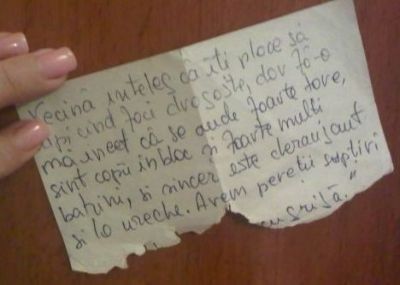 Vecină înțeleg că îți place să
țipi când faci dragoste, dar fă-o
mai încet că se aude foarte tare,
sînt copii în bloc și foarte mulți
bătrîni, și sincer este deranjant
și la ureche. Avem pereții subțiri